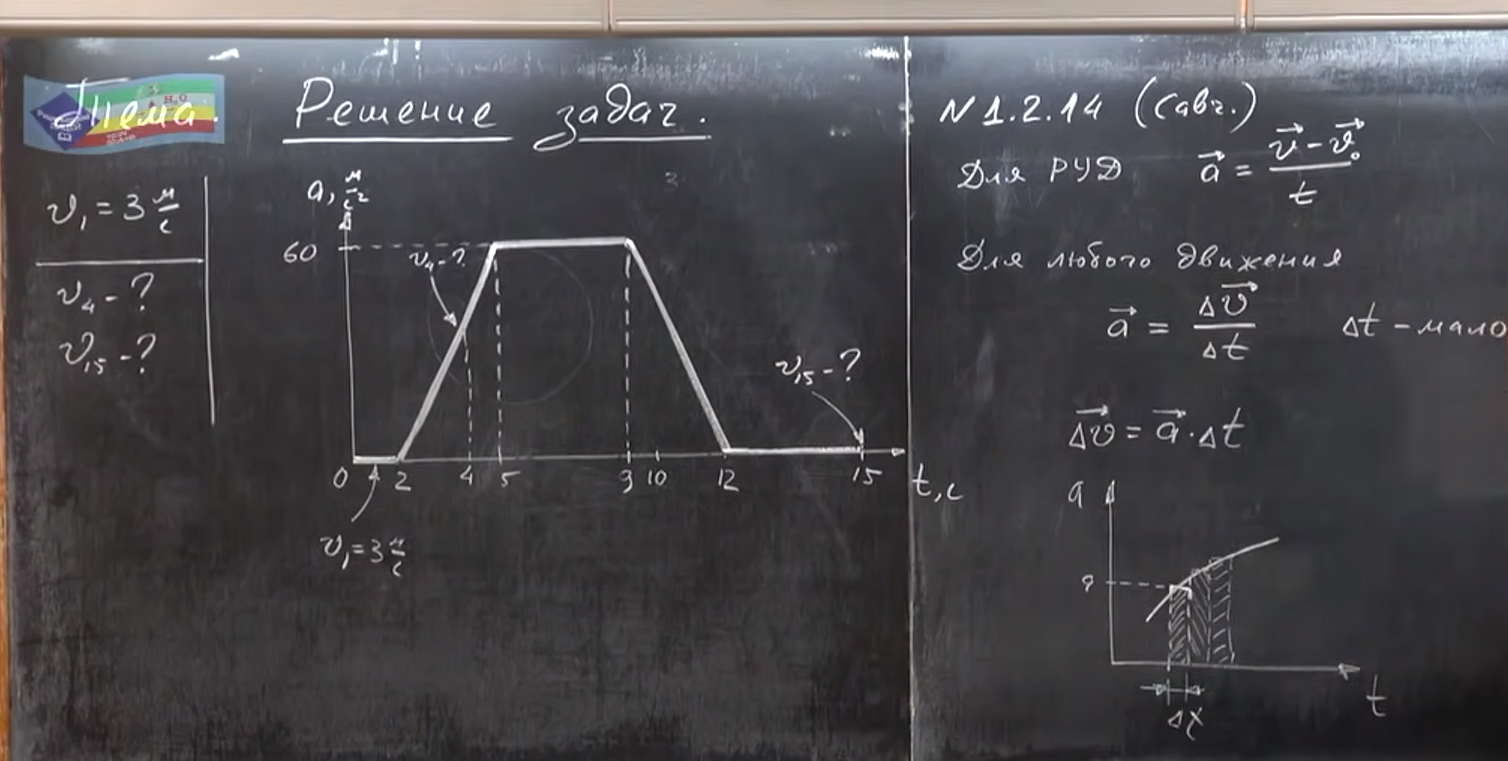 Тема. Решение задач.
v₁ = 3 м/с
v₄ - ?
v₁₅ - ?
a, м/с²
60
v₄ - ?
v₁₅ - ?
0 2 4 5 9 10 12 15 t, с
v₁ = 3 м/с
N 1.2.14 (Савч.)
Для РУД a⃗ = (v⃗ - v⃗₀)/t
Для любого движения
a⃗ = Δv⃗/Δt Δt - мало
Δv⃗ = a⃗ · Δt
a
a
t